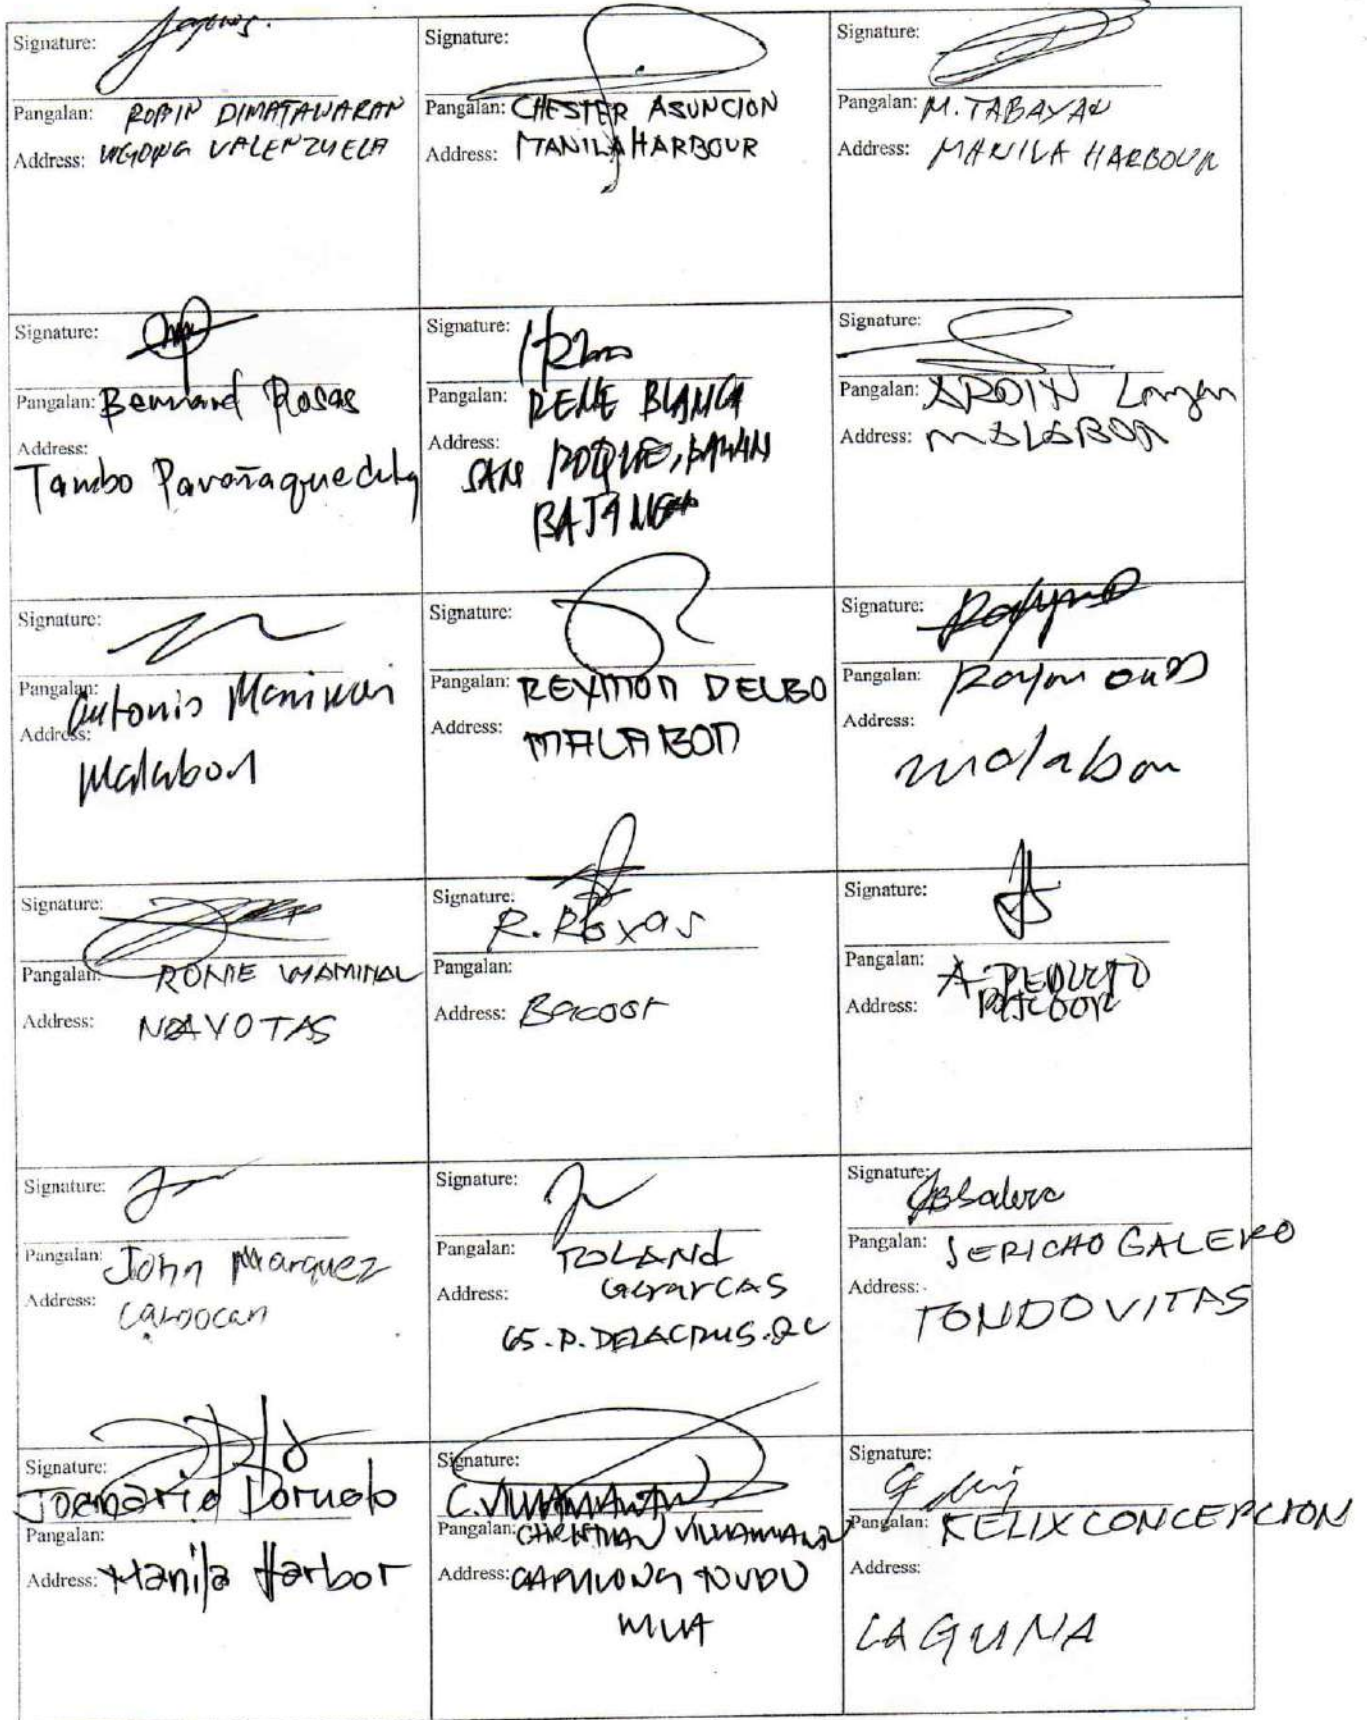 Signature:
Pangalan: ROBIN DIMATAWARAN
Address: UGONG VALENZUELA
Signature:
Pangalan: CHESTER ASUNCION
Address: MANILA HARBOUR
Signature:
Pangalan: M. TABAYAN
Address: MANILA HARBOUR
Signature:
Pangalan: Bernard Rosas
Address:
Tambo Parañaque city
Signature:
Pangalan: RENE BLANCA
Address:
SAN ROQUE,
Signature:
Pangalan:
Address: MALABON
Signature:
Pangalan: Antonio
Address:
Malabon
Signature:
Pangalan: REYMON DELBO
Address: MALABON
Signature:
Pangalan: Raymond
Address:
malabon
Signature:
Pangalan: RONIE
Address: NAVOTAS
Signature:
R. Roxas
Pangalan:
Address: Bacoor
Signature:
Pangalan: A.
Address: BACOOR
Signature:
Pangalan: John Marquez
Address: Caloocan
Signature:
Pangalan: ROLAND
Address:
65. P. DELACRUS. QC
Signature:
Pangalan: JERICHO GALERO
Address:
TONDO VITAS
Signature:
Joemarie
Pangalan:
Address: Manila Harbor
Signature:
Pangalan: CHRISTIAN
Address: TONDO
MLA
Signature:
Pangalan: FELIX CONCEPCION
Address:
LAGUNA